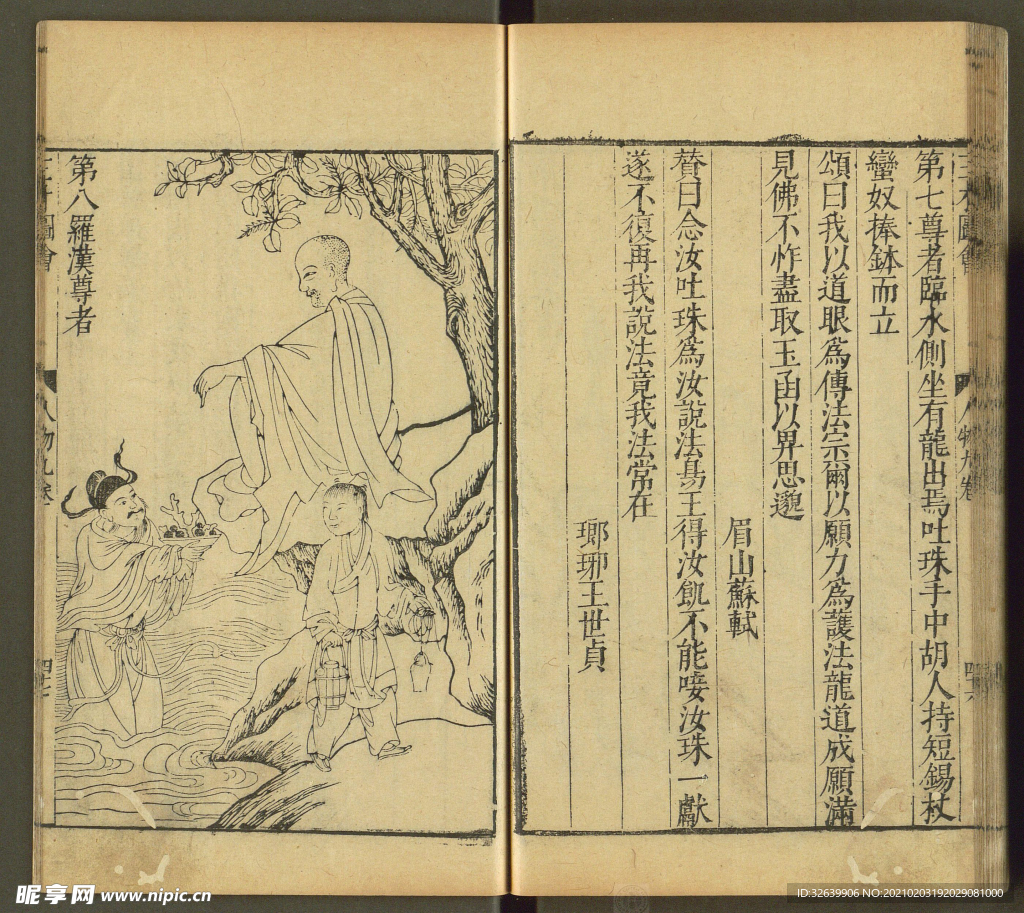 三才圖會
人物九卷
第七尊者臨水側坐有龍出焉吐珠手中胡人持短錫杖
蠻奴捧鉢而立
頌曰我以道眼爲傳法宗爾以願力爲護法龍道成願滿
見佛不怍盡取玉函以畀思邈
眉山蘇軾
贊曰念汝吐珠爲汝說法舄王得汝飢不能唼汝珠一獻
遂不復再我說法竟我法常在
瑯琊王世貞
第八羅漢尊者
圖會
人物九卷
四十七
昵享网 www.nipic.cn
ID:32639906 NO:20210203192029081000